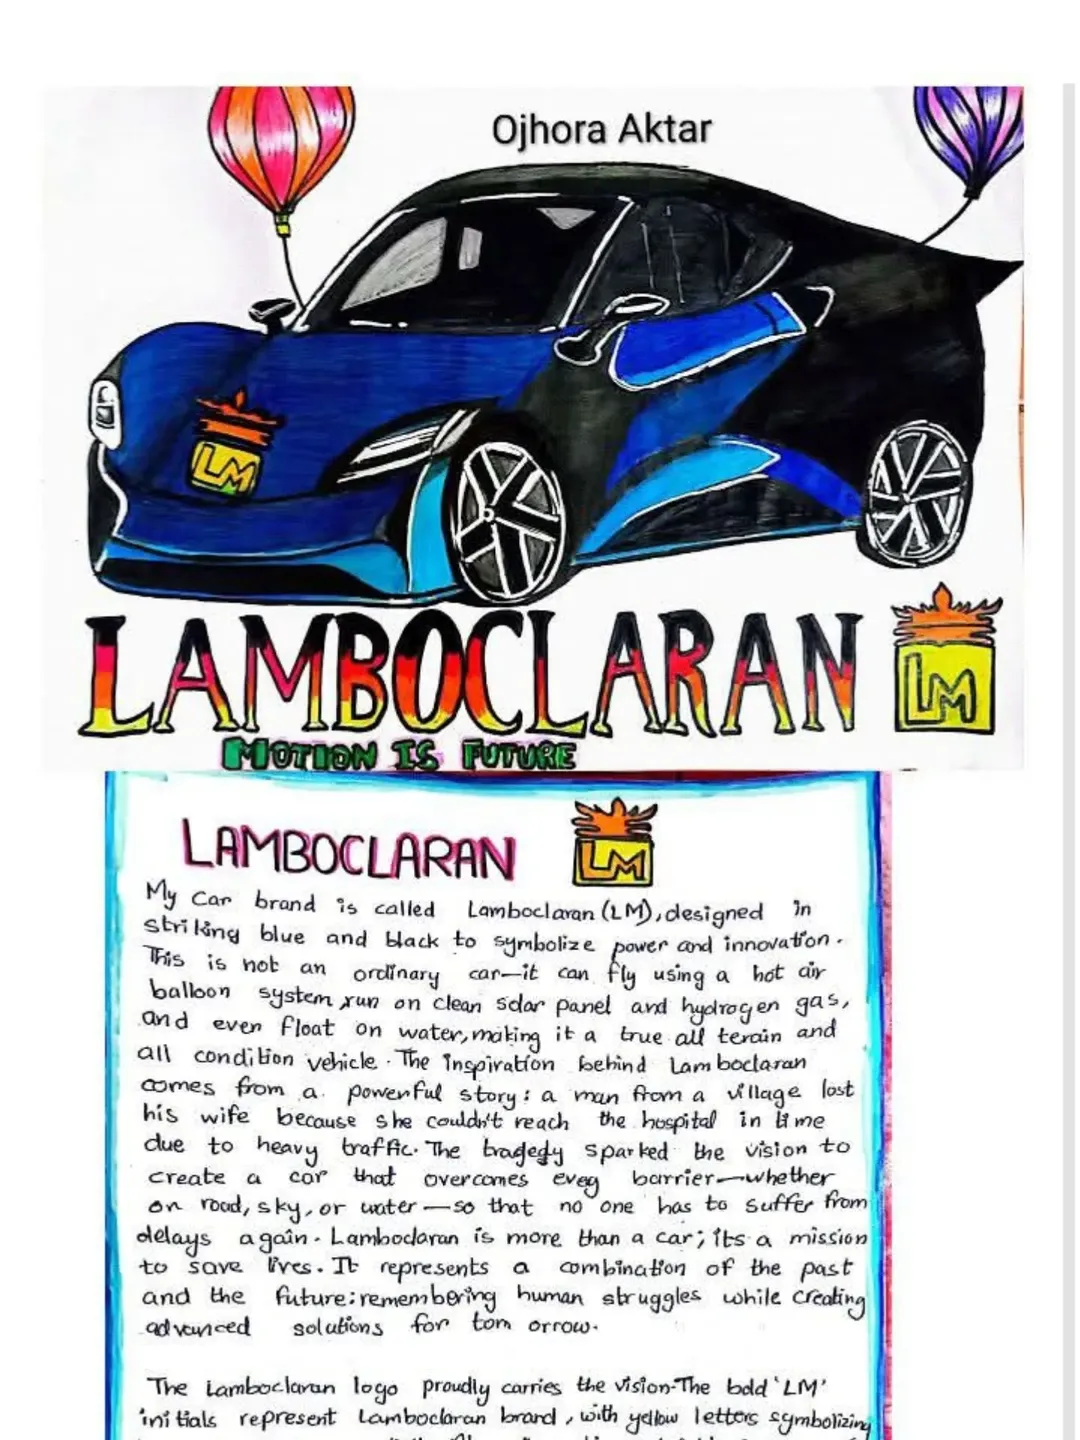 Ojhora Aktar
LM
LAMBOCLARAN
LM
MOTION IS FUTURE
LAMBOCLARAN
LM
My Car brand is called Lamboclaran (LM), designed in
striking blue and black to symbolize power and innovation.
This is not an ordinary car—it can fly using a hot air
balloon system, run on clean solar panel and hydrogen gas,
and even float on water, making it a true all terain and
all condition vehicle. The inspiration behind Lamboclaran
comes from a powerful story: a man from a village lost
his wife because she couldn't reach the hospital in time
due to heavy traffic. The tragedy sparked the vision to
create a car that overcomes evey barrier—whether
on road, sky, or water—so that no one has to suffer from
delays again. Lamboclaran is more than a car; its a mission
to save lives. It represents a combination of the past
and the future: remembering human struggles while creating
advanced solutions for tomorrow.
The Lamboclaran logo proudly carries the vision-The bold 'LM'
initials represent Lamboclaran brand, with yellow letters symbolizing